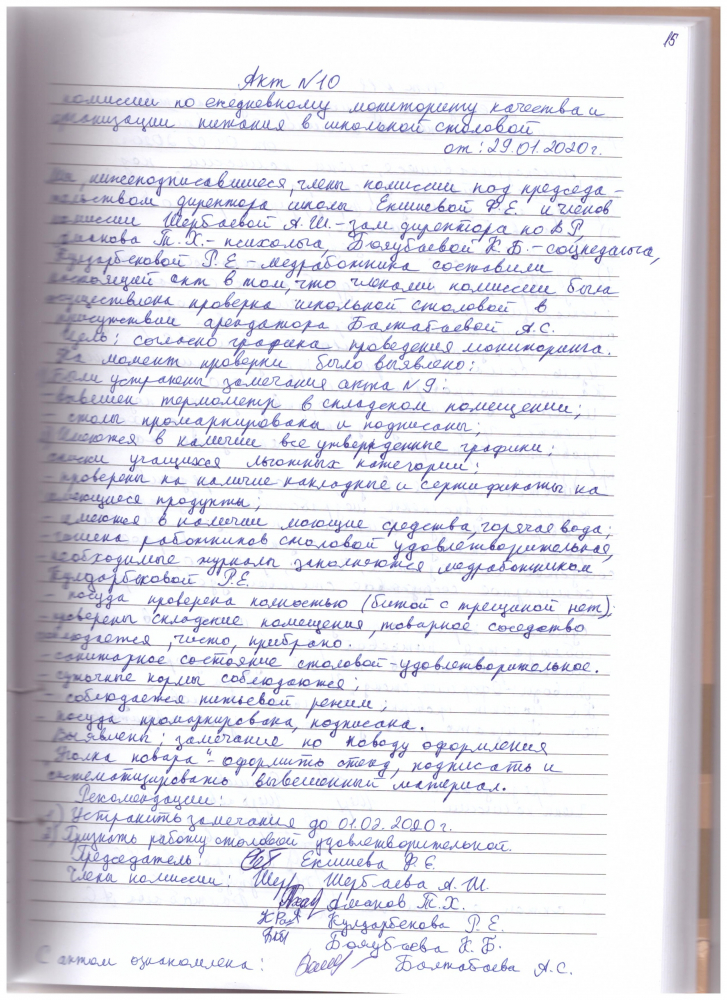 15
Акт №10
комиссии по ежедневному мониторингу качества и
организации питания в школьной столовой
от: 29.01.2020г.
Мы, нижеподписавшиеся, члены комиссии под председа-
тельством директора школы Екишевой Ф.Е. и членов
комиссии Шербаевой А.Ш. - зам директора по ВР,
Аманова Т.Х. - психолога, Бояубаевой К.Б. - соцпедагога,
Кулдарбековой Р.Е - медработника составили
настоящий акт в том, что членами комиссии была
осуществлена проверка школьной столовой в
присутствии арендатора Балтабаевой А.С.
Цель: согласно графика проведения мониторинга.
На момент проверки было выявлено:
1) Были устранены замечания акта №9:
- вывешен термометр в складском помещении;
- столы промаркированы и подписаны;
2) Имеются в наличии все утвержденные графики;
списки учащихся льготных категорий:
- проверены на наличие накладные и сертификаты на
имеющиеся продукты;
- имеются в наличии моющие средства, горячая вода;
- гигиена работников столовой удовлетворительная,
- необходимые журналы заполняются медработником
Кулдарбековой Р.Е.
- посуда проверена полностью (битой с трещиной нет);
- проверены складские помещения, товарное соседство
соблюдается, чисто, прибрано.
- санитарное состояние столовой - удовлетворительное.
- суточные нормы соблюдаются;
- соблюдается питьевой режим;
- посуда промаркирована, подписана.
Выявлены: замечание по поводу оформления
"Уголка повара" - оформить стенд, подписать и
систематизировать вывешенный материал.
Рекомендации:
1) Устранить замечания до 01.02.2020г.
2) Признать работу столовой удовлетворительной.
Председатель: Екишева Ф.Е.
Члены комиссии: Шербаева А.Ш.
Аманов Т.Х.
Кулдарбекова Р.Е.
Бояубаева К.Б.
С актом ознакомлена: Балтабаева А.С.